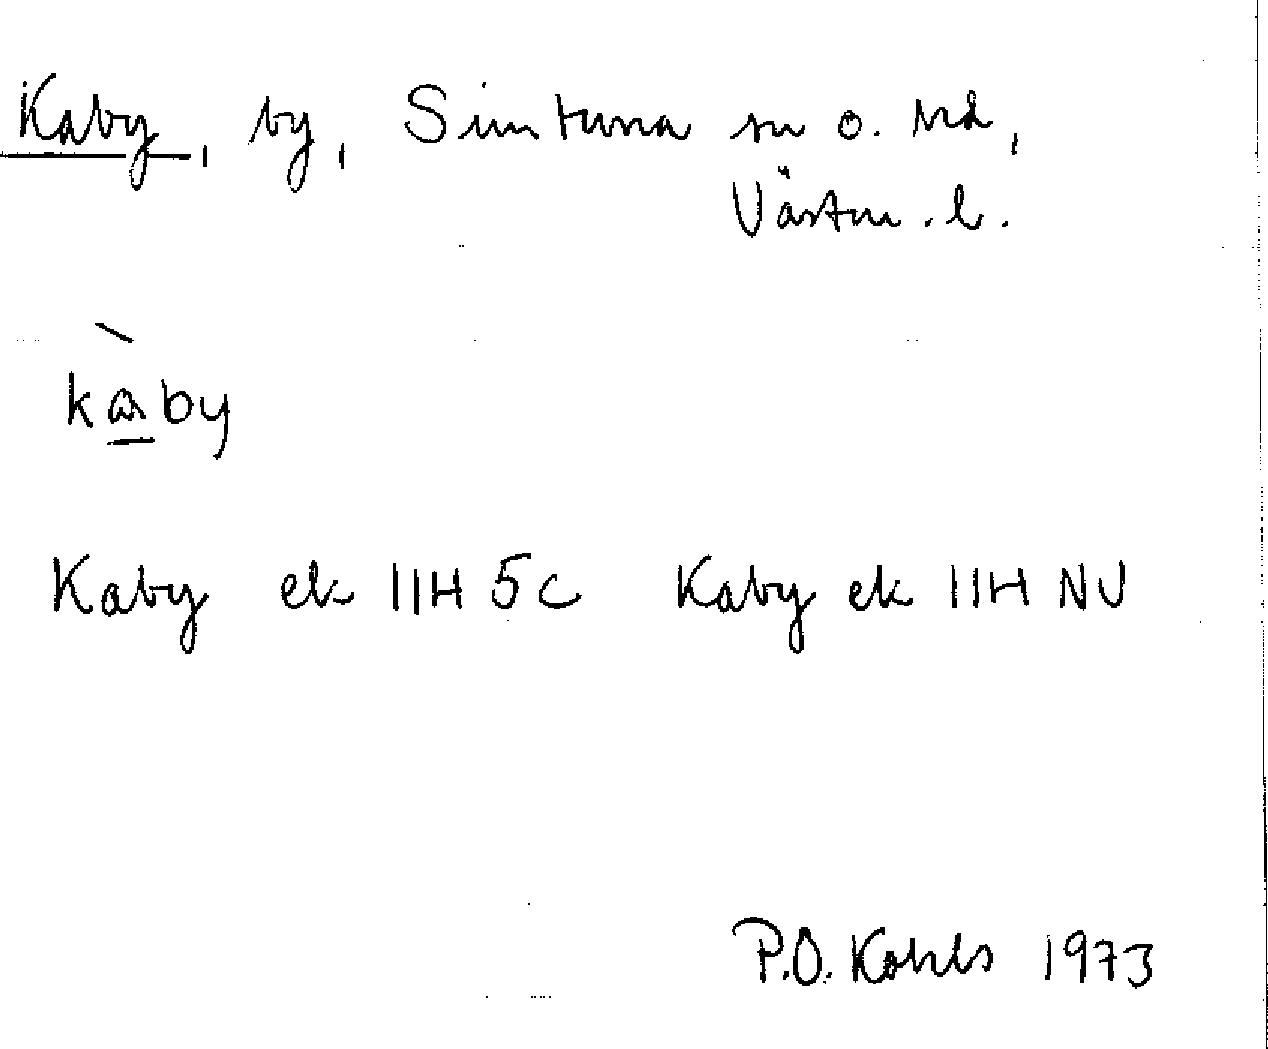 Kaby, by, Simtuna sn o. hd,
Västm. l.
kàby
Kaby ek 11H 5c Kaby ek 11H NV
P.O. Kohls 1973